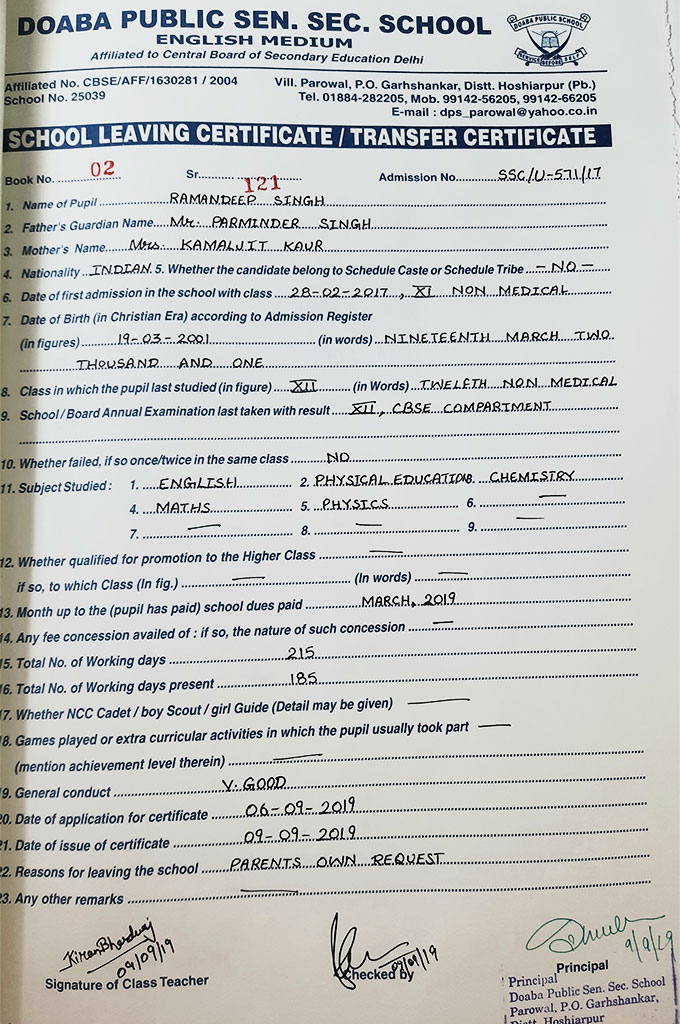 DOABA PUBLIC SEN. SEC. SCHOOL
ENGLISH MEDIUM
Affiliated to Central Board of Secondary Education Delhi
DOABA PUBLIC SCHOOL
SERVICE BEFORE SELF
Affiliated No. CBSE/AFF/1630281 / 2004
School No. 25039
Vill. Parowal, P.O. Garhshankar, Distt. Hoshiarpur (Pb.)
Tel. 01884-282205, Mob. 99142-56205, 99142-66205
E-mail : dps_parowal@yahoo.co.in
SCHOOL LEAVING CERTIFICATE / TRANSFER CERTIFICATE
Book No. 02 Sr. 121 Admission No. SSC/U-571/17
1. Name of Pupil RAMANDEEP SINGH
2. Father's Guardian Name Mr. PARMINDER SINGH
3. Mother's Name Mrs. KAMALJIT KAUR
4. Nationality INDIAN 5. Whether the candidate belong to Schedule Caste or Schedule Tribe - NO -
6. Date of first admission in the school with class 28-02-2017, XI NON MEDICAL
7. Date of Birth (in Christian Era) according to Admission Register
(in figures) 19-03-2001 (in words) NINETEENTH MARCH TWO
THOUSAND AND ONE
8. Class in which the pupil last studied (in figure) XII (in Words) TWELFTH NON MEDICAL
9. School / Board Annual Examination last taken with result XII, CBSE COMPARTMENT
10. Whether failed, if so once/twice in the same class NO
11. Subject Studied : 1. ENGLISH 2. PHYSICAL EDUCATION 3. CHEMISTRY
4. MATHS 5. PHYSICS 6. —
7. — 8. — 9. —
12. Whether qualified for promotion to the Higher Class —
if so, to which Class (In fig.) — (In words) —
13. Month up to the (pupil has paid) school dues paid MARCH, 2019
14. Any fee concession availed of : if so, the nature of such concession —
15. Total No. of Working days 215
16. Total No. of Working days present 185
17. Whether NCC Cadet / boy Scout / girl Guide (Detail may be given) —
18. Games played or extra curricular activities in which the pupil usually took part —
(mention achievement level therein) —
19. General conduct V. GOOD
20. Date of application for certificate 06-09-2019
21. Date of issue of certificate 09-09-2019
22. Reasons for leaving the school PARENTS OWN REQUEST
23. Any other remarks —
Kiran Bhardwaj
09/09/19
Signature of Class Teacher
09/09/19
Checked by
9/9/19
Principal
Principal
Doaba Public Sen. Sec. School
Parowal, P.O. Garhshankar,
Distt. Hoshiarpur